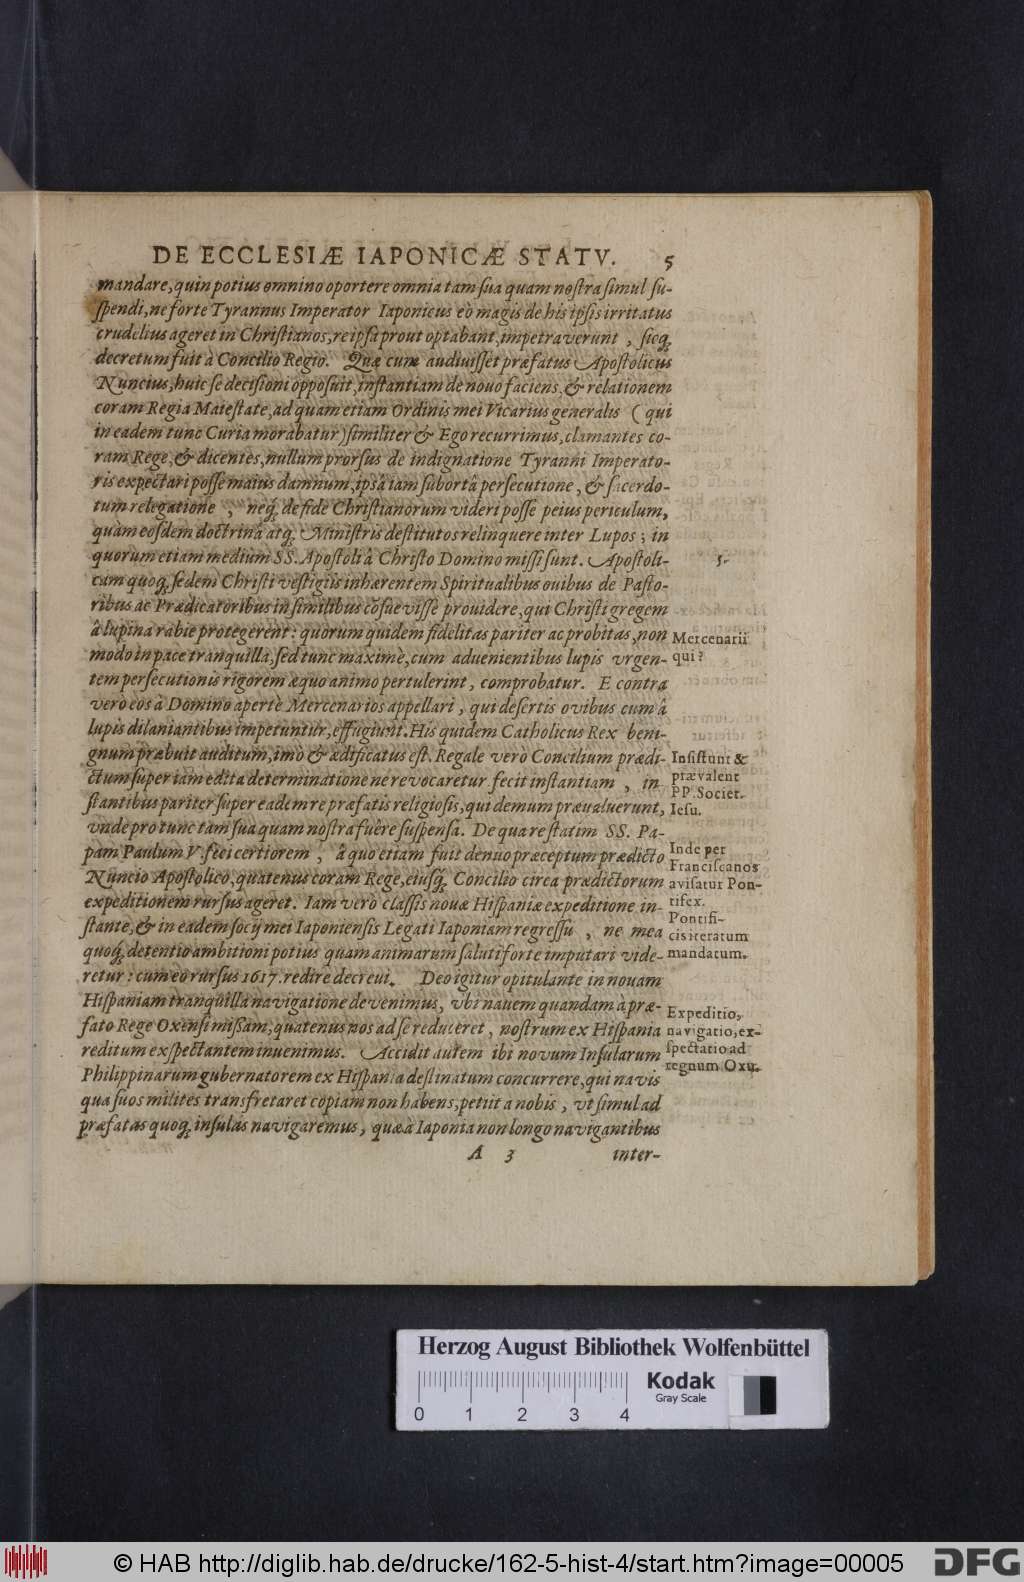 DE ECCLESIÆ IAPONICÆ STATV. 5
mandare, quin potius omnino oportere omnia tam sua quam nostra simul su-
spendi, ne forte Tyrannus Imperator Iaponicus eò magis de his ipsis irritatus
crudelius ageret in Christianos, reipsa prout optabant, impetraverunt, sicq;
decretum fuit à Concilio Regio. Quæ cum audiuisset præfatus Apostolicus
Nuncius, huic se decisioni opposuit, instantiam de novo faciens, & relationem
coram Regia Maiestate, ad quam etiam Ordinis mei Vicarius generalis (qui
in eadem tunc Curia morabatur) similiter & Ego recurrimus, clamantes co-
ram Rege, & dicentes, nullum prorsus de indignatione Tyranni Imperato-
ris expectari posse maius damnum, ipsâ iam subortâ persecutione, & sacerdo-
tum relegatione, neq; de fide Christianorum videri posse peius periculum,
quàm eosdem doctrinâ atq; Ministris destitutos relinquere inter Lupos; in
quorum etiam medium SS. Apostoli â Christo Domino missi sunt. Apostoli-
5.
cam quoq; sedem Christi vestigiis inhærentem Spiritualibus ouibus de Pasto-
ribus ac Prædicatoribus in similibus cõsuevisse prouidere, qui Christi gregem
â lupina rabie protegerent: quorum quidem fidelitas pariter ac probitas, non
modo in pace tranquilla, sed tunc maximè, cum advenientibus lupis vrgen-
Mercenarii
qui?
tem persecutionis rigorem æquo animo pertulerint, comprobatur. E contra
vero eos à Domino apertè Mercenarios appellari, qui desertis ovibus cum â
lupis dilaniantibus impetuntur, effugiunt. His quidem Catholicus Rex beni-
gnum præbuit auditum, imò & ædificatus est. Regale verò Concilium prædi-
ctum super iam edita determinatione ne revocaretur fecit instantiam, in-
stantibus pariter super eadem re præfatis religiosis, qui demum prævaluerunt,
Insistunt &
prævalent
PP. Societ.
Iesu.
vnde pro tunc tam sua quam nostra fuêre suspensa. De qua re statim SS. Pa-
pam Paulum V. feci certiorem, â quo etiam fuit denuo præceptum prædicto
Nuncio Apostolico, quatenus coram Rege, eiusq; Concilio circa prædictorum
expeditionem rursus ageret. Iam verò classis novæ Hispaniæ expeditione in-
Inde per
Franciscanos
avisatur Pon-
tifex.
stante, & in eadem socij mei Iaponiensis Legati Iaponiam regressu, ne mea
quoq; detentio ambitioni potius quam animarum saluti forte imputari vide-
Pontifi-
cis iteratum
mandatum.
retur: cum eo rursus 1617. redire decrevi. Deo igitur opitulante in novam
Hispaniam tranquilla navigatione devenimus, vbi navem quandam à præ-
fato Rege Oxensi missam, quatenus nos ad se reduceret, nostrum ex Hispania
reditum exspectantem inuenimus. Accidit autem ibi novum Insularum
Expeditio,
navigatio, ex-
spectatio ad
regnum Oxu.
Philippinarum gubernatorem ex Hispania destinatum concurrere, qui navis
qua suos milites transfretaret copiam non habens, petiit a nobis, vt simul ad
præfatas quoq; insulas navigaremus, quæ à Iaponia non longo navigantibus
A 3 inter-
Herzog August Bibliothek Wolfenbüttel
Kodak
Gray Scale
0 1 2 3 4
© HAB http://diglib.hab.de/drucke/162-5-hist-4/start.htm?image=00005
DFG